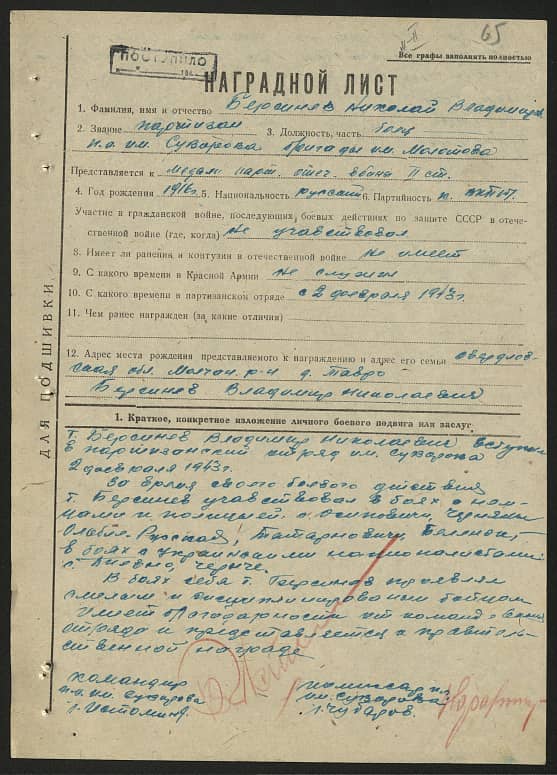 65
Все графы заполнять полностью
ПОСТУПИЛО
НАГРАДНОЙ ЛИСТ
1. Фамилия, имя и отчество Берсинев Николай Владимир
2. Звание партизан 3. Должность, часть боец
п.о. им. Суворова бригады им. Молотова
Представляется к медали парт. отеч. войны II ст.
4. Год рождения 1916г. 5. Национальность русский 6. Партийность
Участие в гражданской войне, последующих боевых действиях по защите СССР в отече-
ственной войне (где, когда) Не учавствовал
8. Имеет ли ранения и контузии в отечественной войне Не имеет
9. С какого времени в Красной Армии Не служил
10. С какого времени в партизанском отряде с 2 февраля 1943г.
11. Чем ранее награжден (за какие отличия)
12. Адрес места рождения представляемого к награждению и адрес его семьи свердлов-
ская обл. р-н д. Тавро
Берсинев Владимир Николаевич
ДЛЯ ПОДШИВКИ
1. Краткое, конкретное изложение личного боевого подвига или заслуг
т. Берсинев Владимир Николаевич вступил
в партизанский отряд им. Суворова
2 февраля 1943г.
За время своего боевого действия
т. Берсинев учавствовал в боях с нем-
цами и полицией с. Осиповичи,
Русская, Татарновичи,
в боях с украинскими националистами
с.
В боях себя т. Берсинев проявлял
смелым и дисциплинированным бойцом
Имеет благодарности от командования
отряда и представляется к правитель-
ственной награде
командир
п.о. им. Суворова
/. Истомин/.
комиссар п.о.
им. Суворова
/. Чубаров.